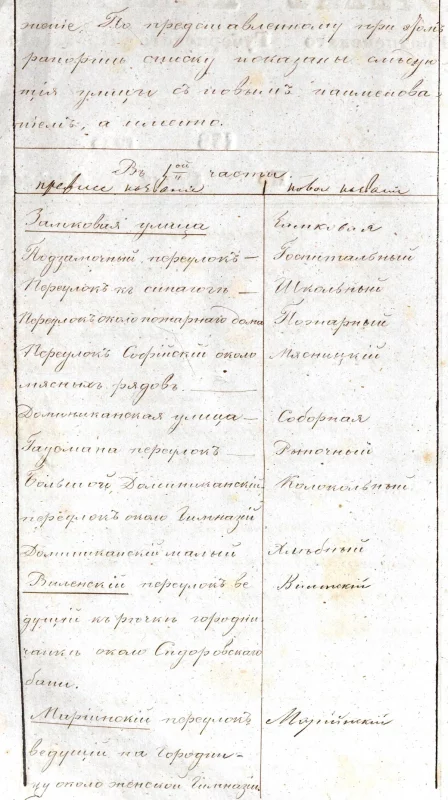 женіе. По представленному при этомъ
рапортѣ списку показаны слѣдую
щія улицы съ новымъ наименова
ніемъ, а именно.
Въ 1ой части.
прежнее названіе новое названіе
Замковая улица Замковая
Подзамочный переулокъ — Госпитальный
Переулокъ къ синагогѣ — Школьный
Переулокъ около пожарнаго дома Пожарный
Переулокъ Софійскій около Мясницкій
мясныхъ рядовъ. —
Доминиканская улица — Соборная
переулокъ — Рыночный
Большой Доминиканскій Колокольный
переулокъ около Гимназіи
Доминиканскій малый Хлѣбный
Виленскій переулокъ ве Виленскій
дущій къ рѣчкѣ городни
чанкѣ около Сидоровскаго
бани.
Маріинскій переулокъ Маріинскій
ведущій на Городни-
цу около женской Гимназіи